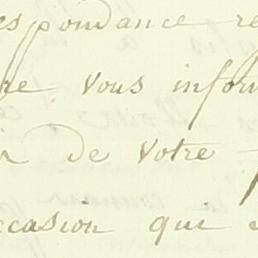 espondance re
re vous infor
de votre
occasion qui